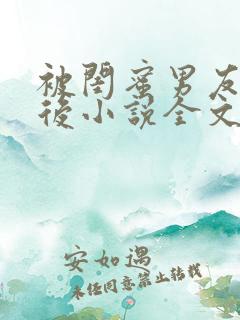 被閨蜜男友
後小說全文
安如遇
未经同意禁止转载